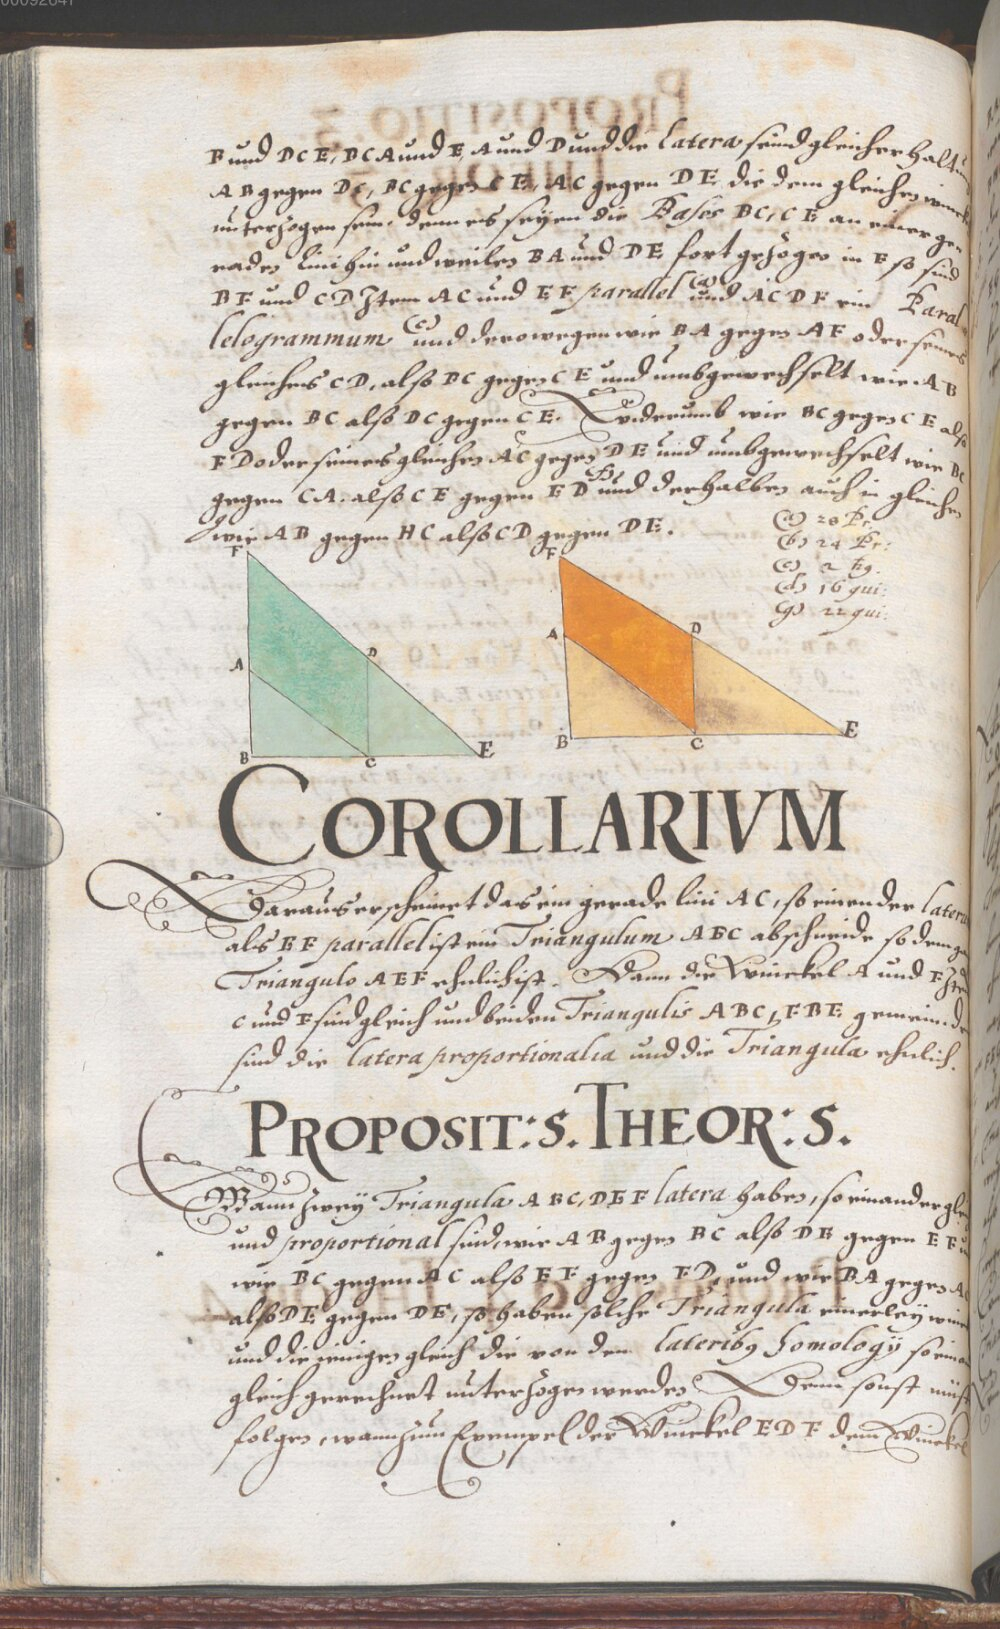 B und DCE, BCA und E A und D und die latera seind gleicher halt
AB gegen DC, BC gegen CE, AC gegen DE die dem gleichen
unterzogen sein. denn es seyen die Bases BC, CE an einer ge
raden Lini hin und weilen BA und DE fort gezogen in F so sind
BF und CD Item AC und EF parallel (a) und ACDF ein Paral
lelogrammum (c) und derowegen wie BA gegen AF oder seines
gleichens CD, also BC gegen CE und umbgewechselt wie AB
gegen BC also DC gegen CE. widerumb wie BC gegen CE also
FD oder seines gleichen AC gegen DE und umbgewechselt wie BC
gegen CA. also CE gegen ED und derhalben auch in gleichen
wie AB gegen HC also CD gegen DE.
(a) 28 Pr.
(b) 24 Pr:
(c) 2 hg.
(d) 16 qui:
(g) 22 qui:
F
A
D
B
C
E
F
A
D
B
C
E
COROLLARIVM
Daraus erscheinet das ein gerade lini AC, so einen der latera
als EF parallel ist ein Triangulum ABC abschneide so dem
Triangulo AEF ehnlich ist. Dann die Winckel A und F
C und E sind gleich und beiden Triangulis ABC, FBE gemein
sind die latera proportionalia und die Triangula ehnlich.
PROPOSIT: 5. THEOR: 5.
Wann zwey Triangula ABC, DEF latera haben, so einander
und proportional sind, wie AB gegen BC also DE gegen EF
wie BC gegen AC also EF gegen FD, und wie BA gegen
also DE gegen DE, so haben solche Triangula einerley
und die ienigen gleich die von den lateribq homologÿ
gleich gerechnet unterzogen werden Denn sonst
folgen, wann zum Exempel der Winckel EDF dem Winckel